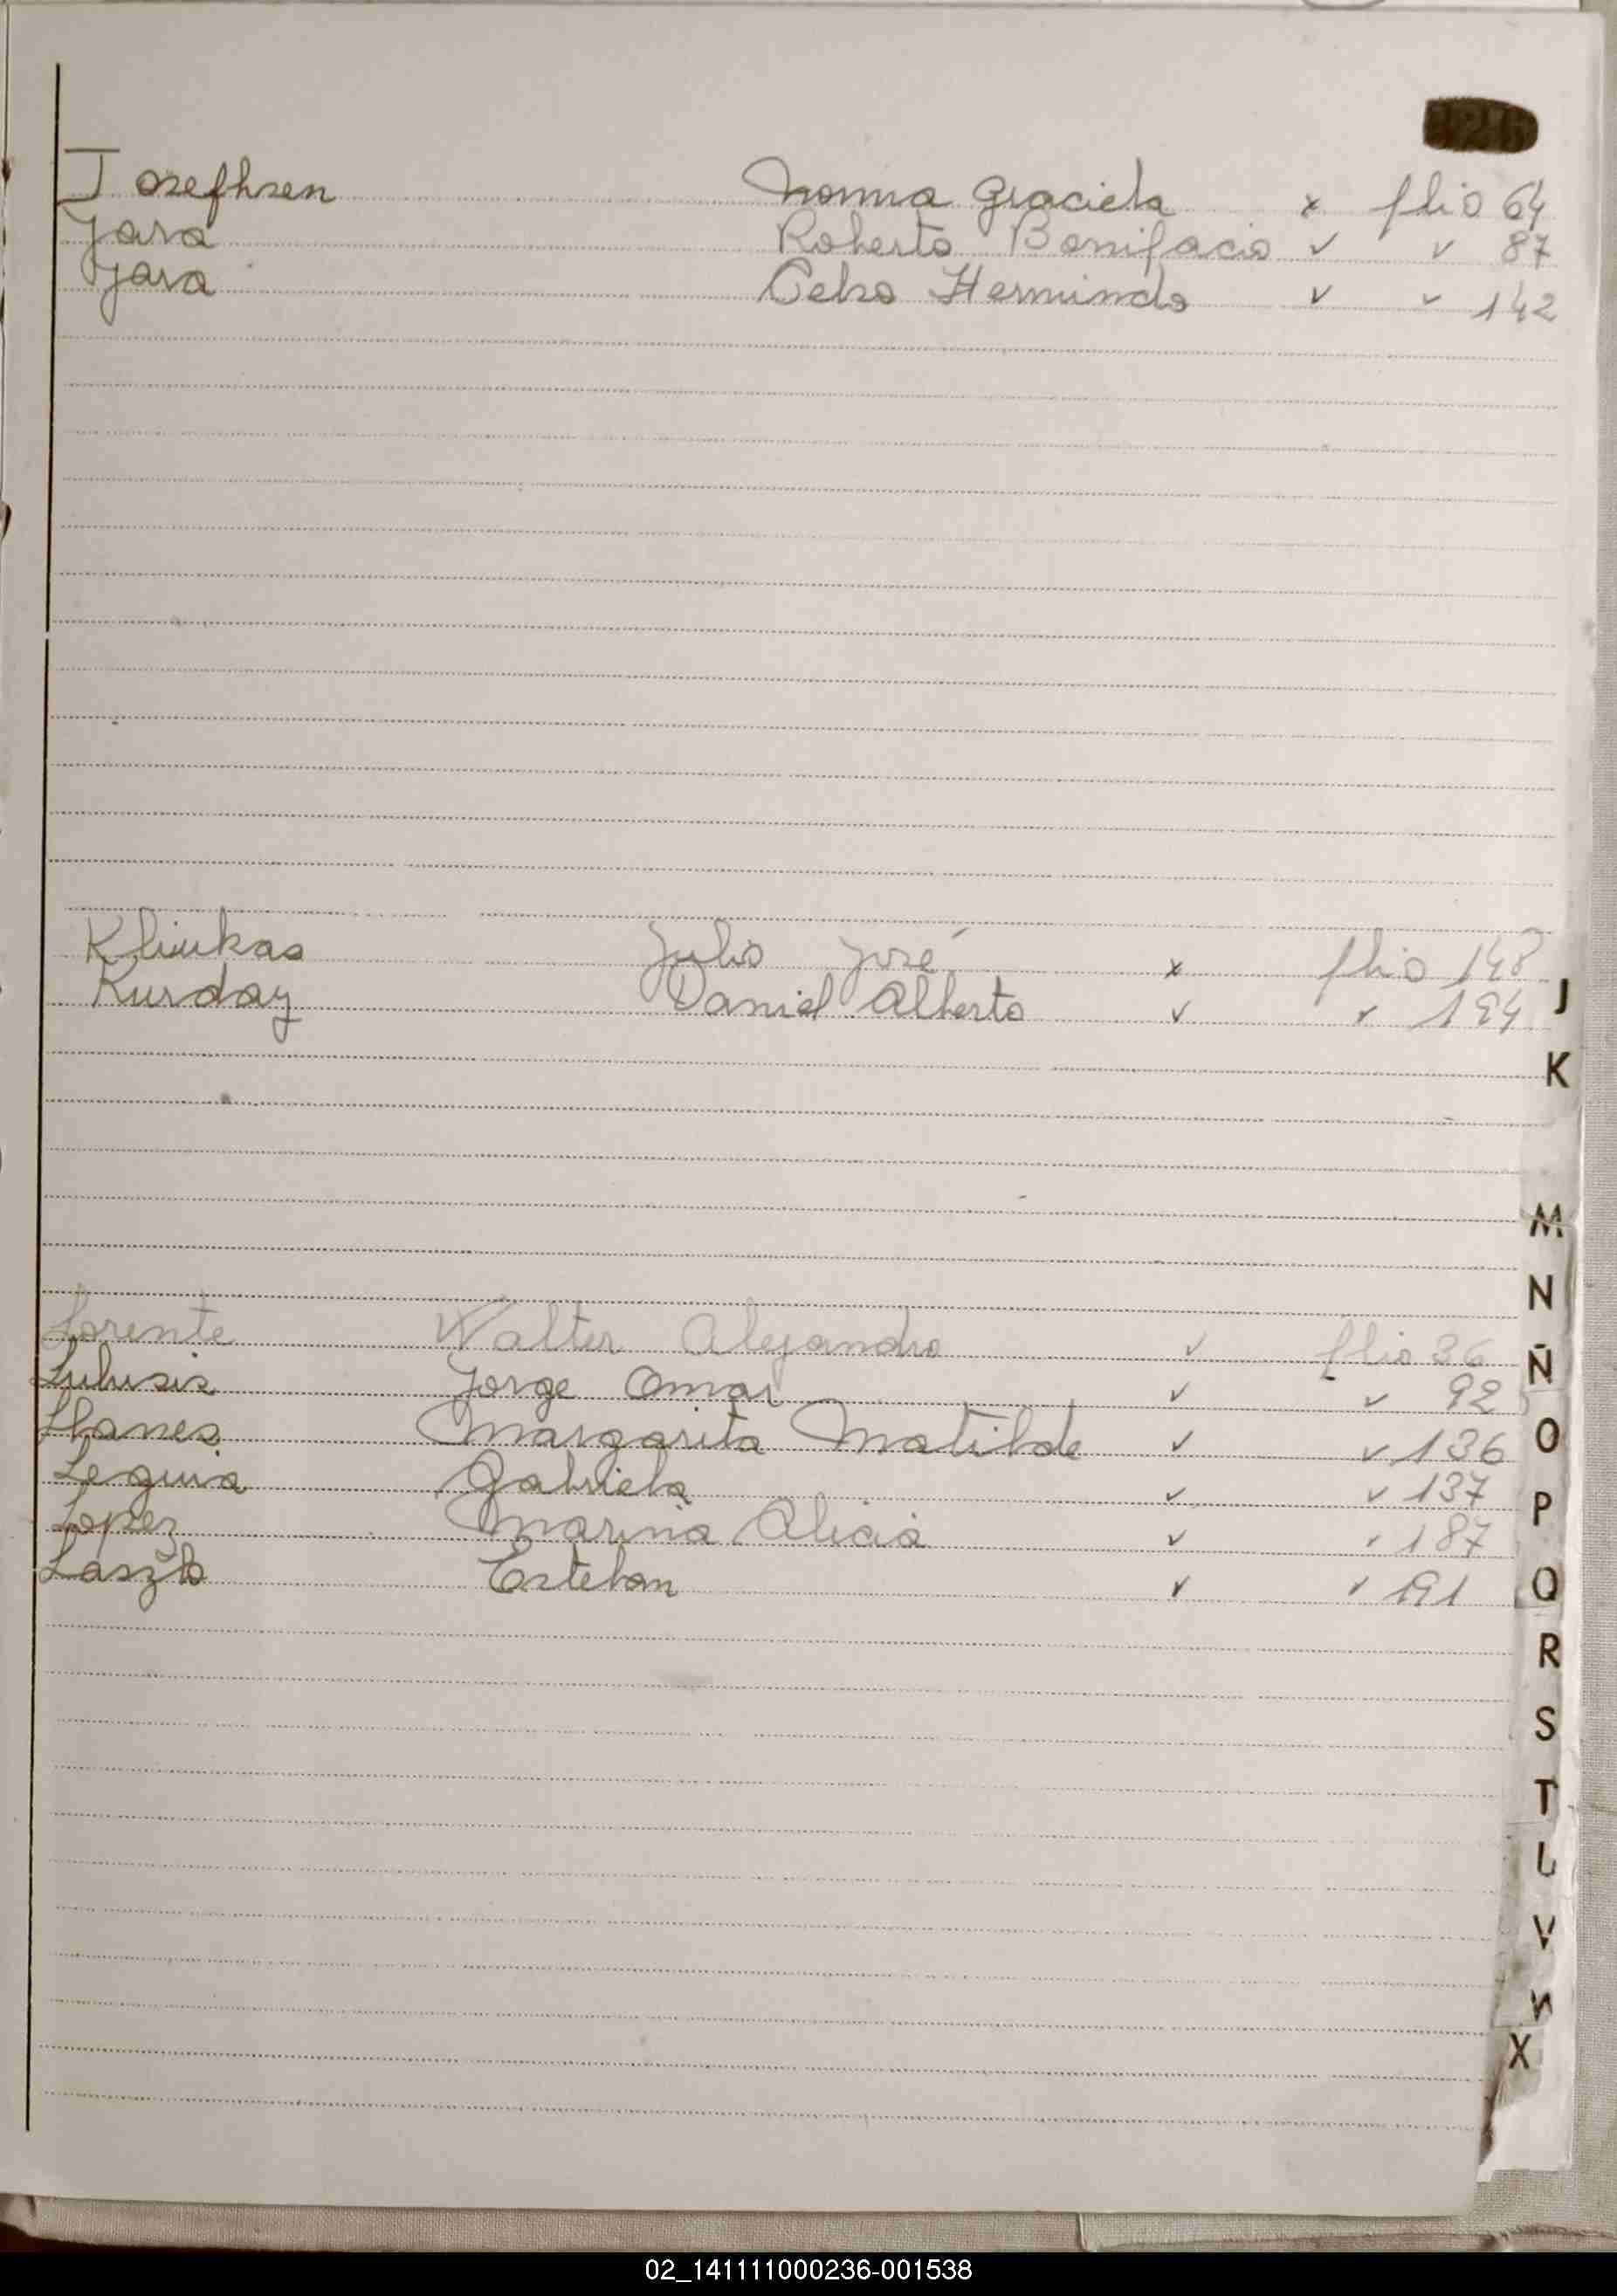 Josefhsen Norma Graciela x flio 64
Jara Roberto Bonifacio v v 87
Jara Celso Hermindo v v 142
Kliukas Julio José x flio 148
Kurday Daniel Alberto v v 194
J
K
Lorente Walter Alejandro v flio 36
Lulusis Jorge Omar v v 92
Llanes Margarita Matilde v v 136
Leguia Gabriela v v 137
Lopez Marina Alicia v v 187
Laszlo Esteban v v 191
M
N
Ñ
O
P
Q
R
S
T
U
V
W
X
02_141111000236-001538